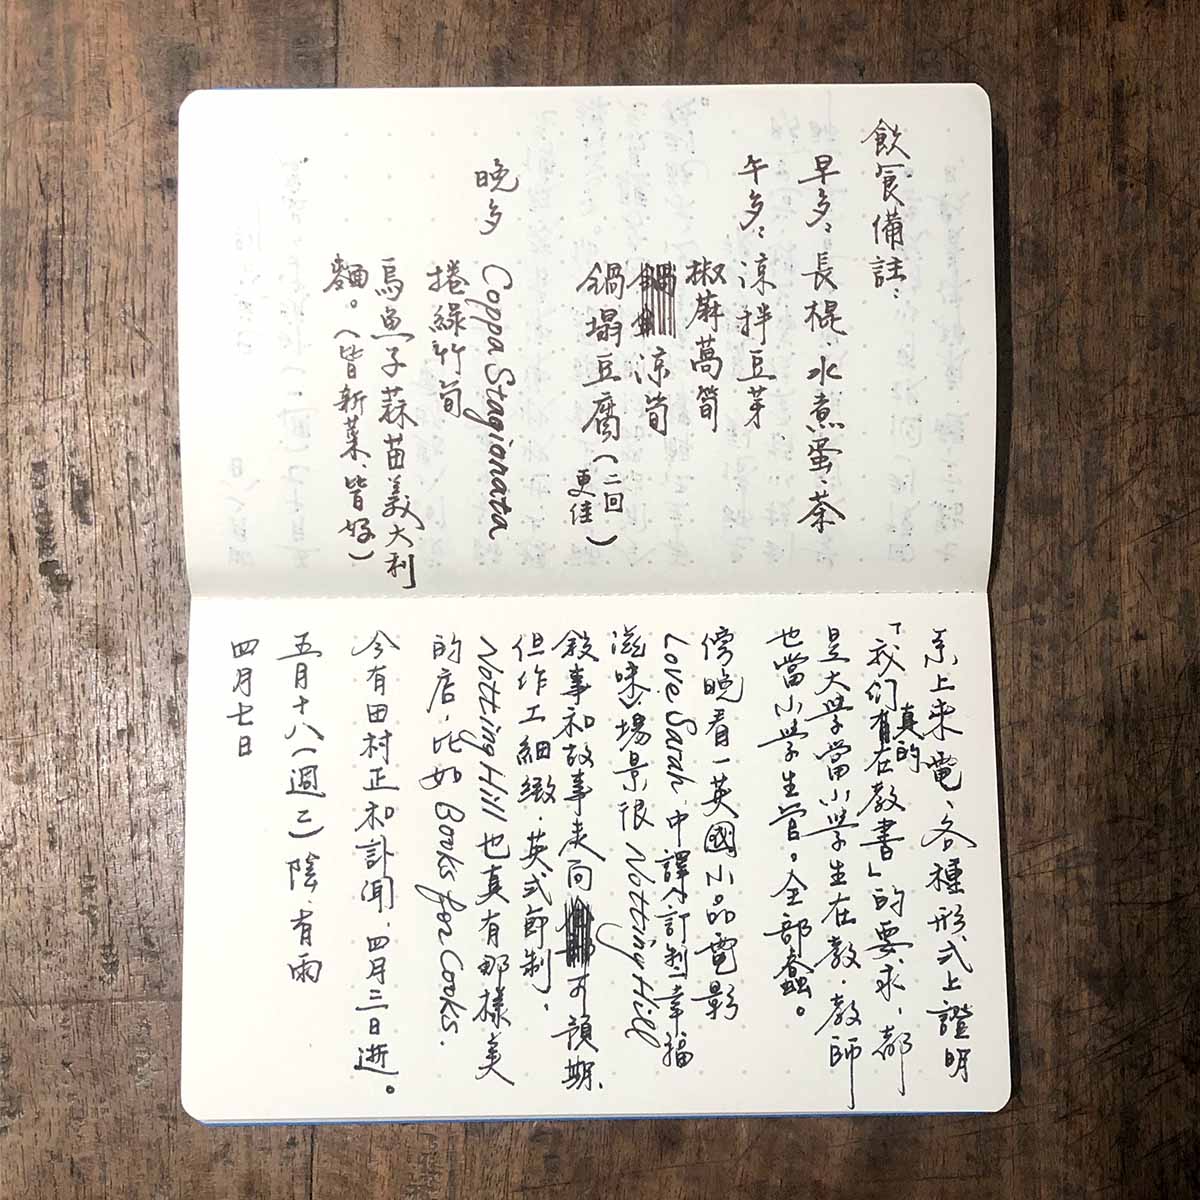 飲食備註：
早歺：長棍、水煮蛋、茶
午歺：涼拌豆芽
椒麻萵筍
涼筍
鍋塌豆腐（二回更佳）
晚歺 Coppa Stagionata
捲綠竹筍
烏魚子蒜苗義大利
麵。（皆新菜、皆好）
系上來電、各種形式上證明
「我们真的有在教書」的要求，都
是大學當小學生在教，教師
也當小學生管。全部蠢。
傍晚看一英國小品電影
Love Sarah，中譯訂制幸福
滋味，場景很 Notting Hill
敘事和故事走向可預期、
但作工細緻，英式節制，
Notting Hill 也真有那樣美
的店，比如 Books for Cooks.
今有田村正和訃聞，四月三日逝。
五月十八（週二）陰，有雨
四月七日